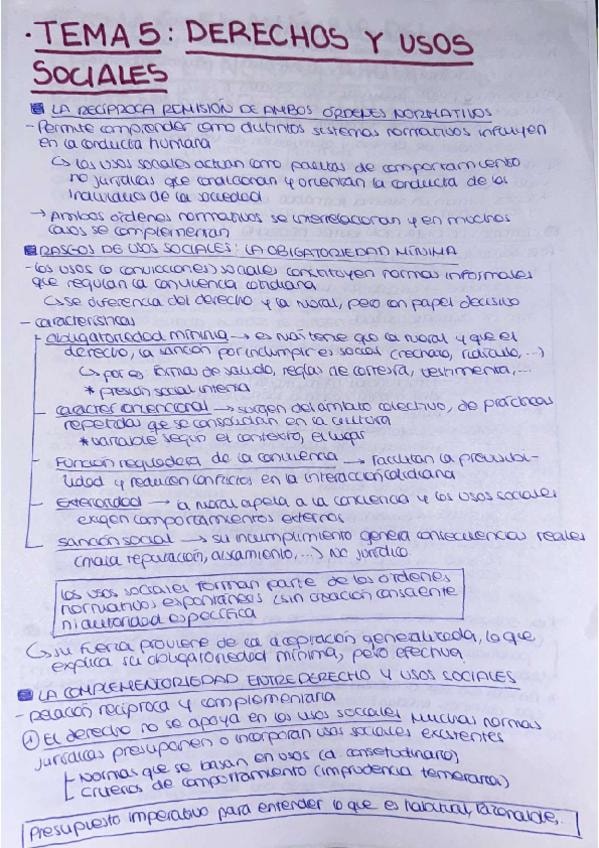 · TEMA 5: DERECHOS Y USOS
SOCIALES
LA RECÍPROCA REMISIÓN DE AMBOS ÓRDENES NORMATIVOS
- Permite comprender como distintos sistemas normativos influyen
en la conducta humana
↳ los usos sociales actúan como pautas de comportamiento
no jurídicas que condicionan y orientan la conducta de los
individuos de la sociedad
→ Ambos órdenes normativos se interrelacionan y en muchos
casos se complementan
RASGOS DE USOS SOCIALES: LA OBLIGATORIEDAD MÍNIMA
- los usos (o convicciones) sociales constituyen normas informales
que regulan la convivencia cotidiana
↳ se diferencia del derecho y la moral, pero con papel decisivo
- características
obligatoriedad mínima → es más tene que la moral y que el
derecho, la sanción por incumplir es social (rechazo, ridículo, ...)
↳ por ej formas de saludo, reglas de cortesía, vestimenta, ...
* presión social interna
carácter convencional → surgen del ámbito colectivo, de prácticas
repetidas que se consolidan en la cultura
* variable según el contexto, el lugar
Función reguladora de la convivencia → Facilitan la previsibi-
lidad y reducen conflictos en la interacción cotidiana
Exterioridad → la moral apela a la conciencia y los usos sociales
exigen comportamientos externos
sanción social → su incumplimiento genera consecuencias reales
(mala reputación, aislamiento, ...) No jurídico
los usos sociales forman parte de los órdenes
normativos espontáneos (sin creación consciente
ni autoridad específica
↳ su fuerza proviene de la aceptación generalizada, lo que
explica su obligatoriedad mínima, pero efectiva
LA COMPLEMENTORIEDAD ENTRE DERECHO Y USOS SOCIALES
- Relación recíproca y complementaria
① El derecho no se apoya en los usos sociales Muchas normas
jurídicas presuponen o incorporan usos sociales existentes
Normas que se basan en usos (d. consetudinario)
criterios de comportamiento (imprudencia temeraria)
Presupuesto imperativo para entender lo que es habitual, razonable,